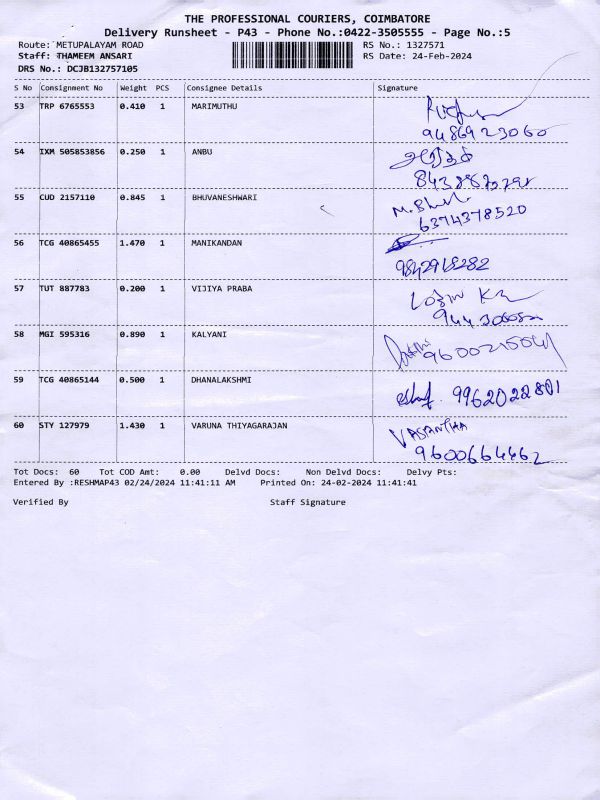 THE PROFESSIONAL COURIERS, COIMBATORE
Delivery Runsheet - P43 - Phone No.:0422-3505555 - Page No.:5
Route: METUPALAYAM ROAD RS No.: 1327571
Staff: THAMEEM ANSARI RS Date: 24-Feb-2024
DRS No.: DCJB132757105
S No Consignment No Weight PCS Consignee Details Signature
53 TRP 6765553 0.410 1 MARIMUTHU
9486923060
54 IXM 505853856 0.250 1 ANBU
55 CUD 2157110 0.845 1 BHUVANESHWARI
6374378520
56 TCG 40865455 1.470 1 MANIKANDAN
9842918282
57 TUT 887783 0.200 1 VIJIYA PRABA
58 MGI 595316 0.890 1 KALYANI
59 TCG 40865144 0.500 1 DHANALAKSHMI 9962022801
60 STY 127979 1.430 1 VARUNA THIYAGARAJAN VASANTHA
9600664662
Tot Docs: 60 Tot COD Amt: 0.00 Delvd Docs: Non Delvd Docs: Delvy Pts:
Entered By :RESHMAP43 02/24/2024 11:41:11 AM Printed On: 24-02-2024 11:41:41
Verified By Staff Signature